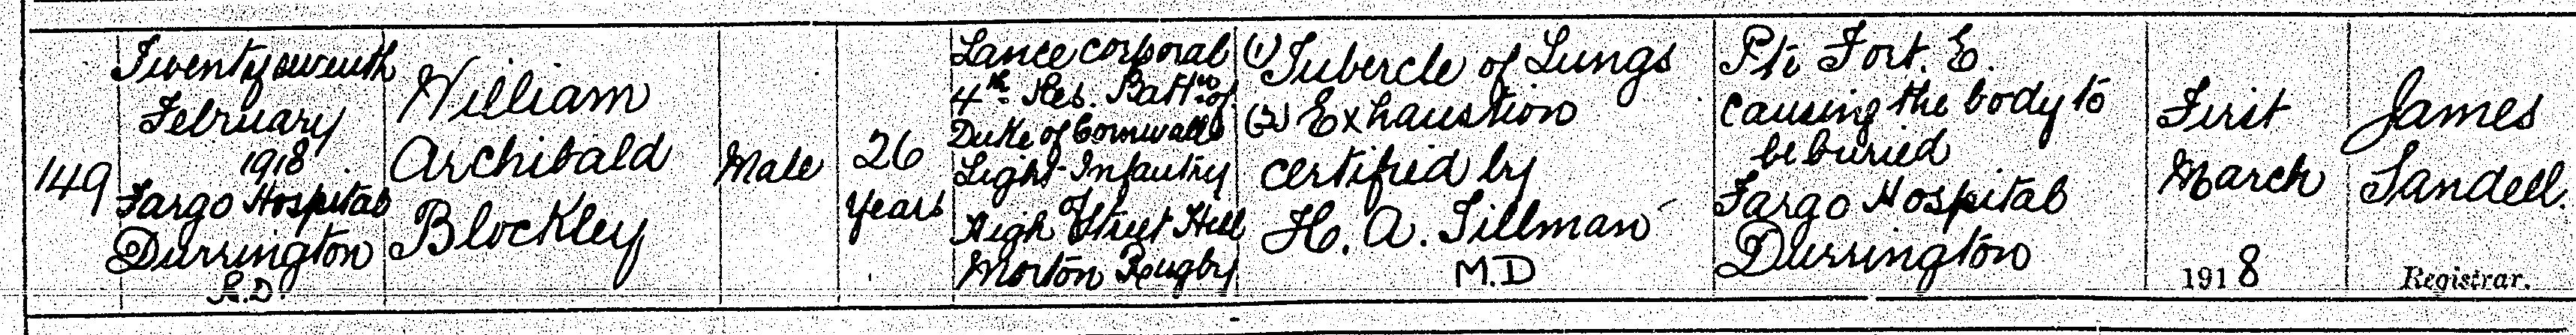 149
Twenty seventh
February
1918
Fargo Hospital
Durrington
R.D.
William
Archibald
Blockley
Male
26
years
Lance corporal
4th Res. Battn of
Duke of Cornwalls
Light Infantry
High Street Hill
Morton Rugby
(1) Tubercle of Lungs
(2) Exhaustion
certified by
H. A. Tillman
M.D
Fort. E.
causing the body to
be buried
Fargo Hospital
Durrington
First
March
1918
James
Sandell.
Registrar.